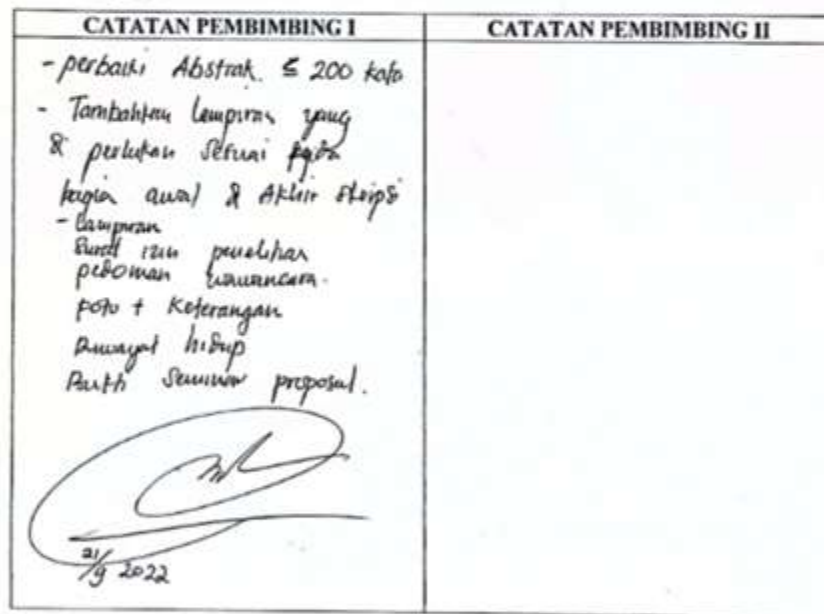 CATATAN PEMBIMBING I
- perbaiki Abstrak ≤ 200 kata
- Tambahkan lampiran yang
perlukan sesuai pada
bagian awal & Akhir skripsi
- Lampiran
Surat izin penelitian
pedoman wawancara.
foto + Keterangan
Riwayat hidup
Bukti Seminar proposal.
21/9 2022
CATATAN PEMBIMBING II